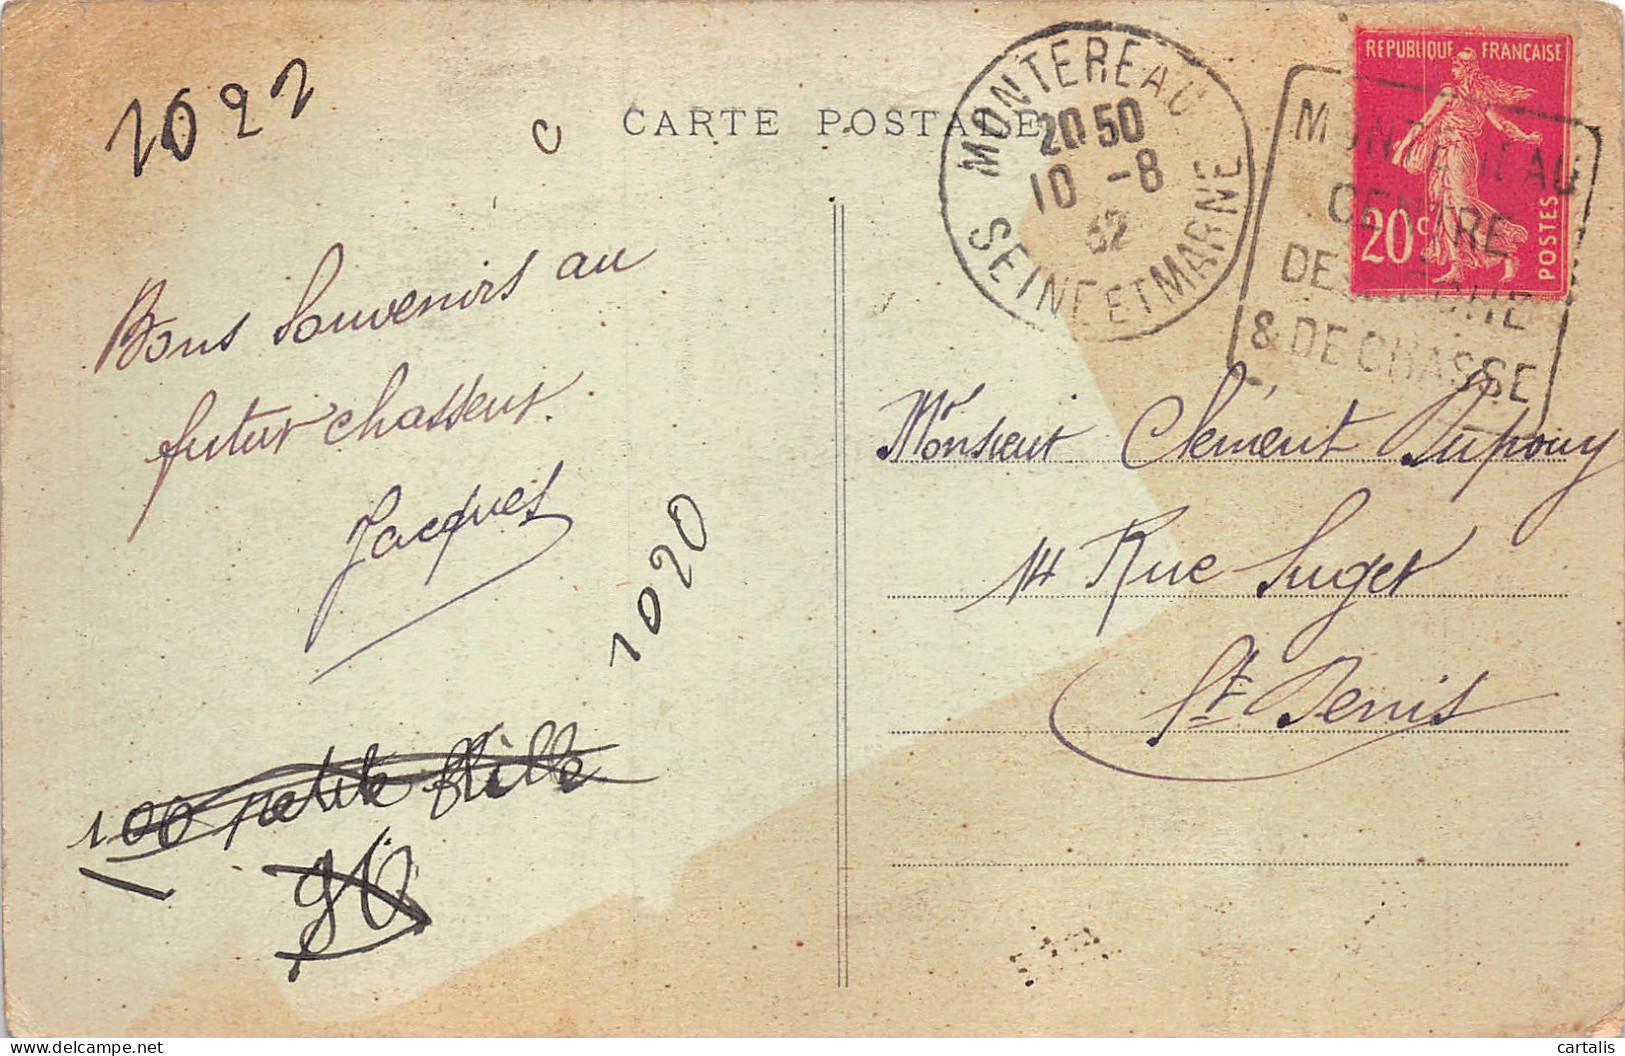 1022
C
CARTE POSTALE
MONTEREAU
20 50
10 -8
32
SEINE ET MARNE
REPUBLIQUE FRANÇAISE
20c
POSTES
MONTEREAU
CENTRE
DE PECHE
& DE CHASSE
Bons Souvenirs au
futur chasseur.
Jacques
1020
100 petite
90
Monsieur Clément Dupouy
14 Rue Suget
St Denis
delcampe.net
cartalis